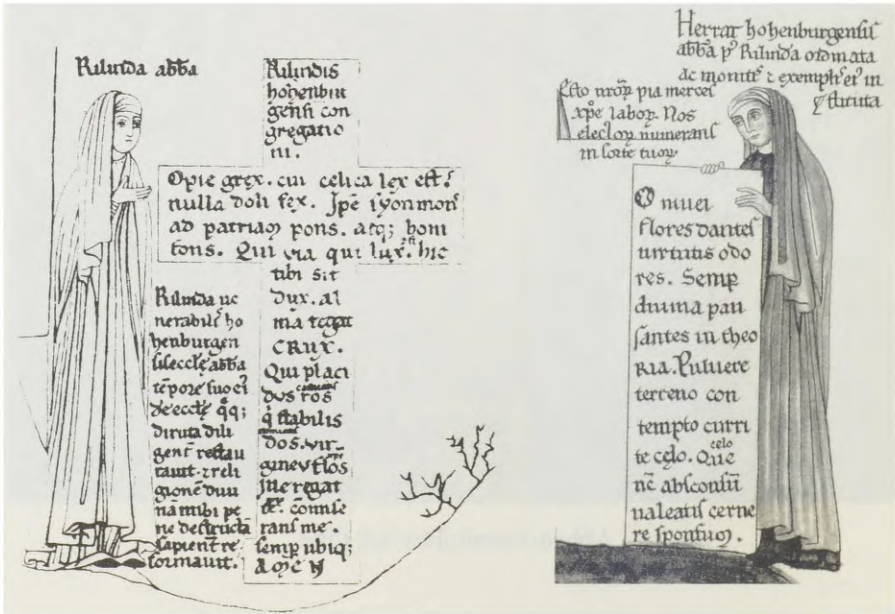 Rilinda abba
Rilindis
hohenbur
gensi con
gregatio
ni.
O pie grex. cui celica lex est.
nulla doli fex. Ipse syon mons
ad patriam pons. atq; boni
fons. Qui via qui lux. hic
tibi sit
dux. al
ma tegat
CRUX.
Qui placi
dus ros
q stabilis
dos. vir
gineus flos
ille regat
te. comise
rans me.
semp ubiq;
AMEN
Rilinda ue
nerabilis ho
henburgen
sis eccle abba
tepore suo ei
de eccle qq;
diruta dili
gent restau
rauit. z reli
gione diui
na inibi pe
ne destructa
sapient re
formauit.
Herrat hohenburgensis
abba p Rilinda ordinata
ac monitis z exemplis ei in
stituta
Esto nrorum pia merces
xpe laborum. Nos
electorum numerans
in sorte tuorum
O niuei
flores dantes
uirtutis odo
res. Semp
diuina pau
santes in theo
RIA. Puluere
terreno con
tempto curri
te celo. Que
nc absconsum
ualeatis cerne
re sponsum.